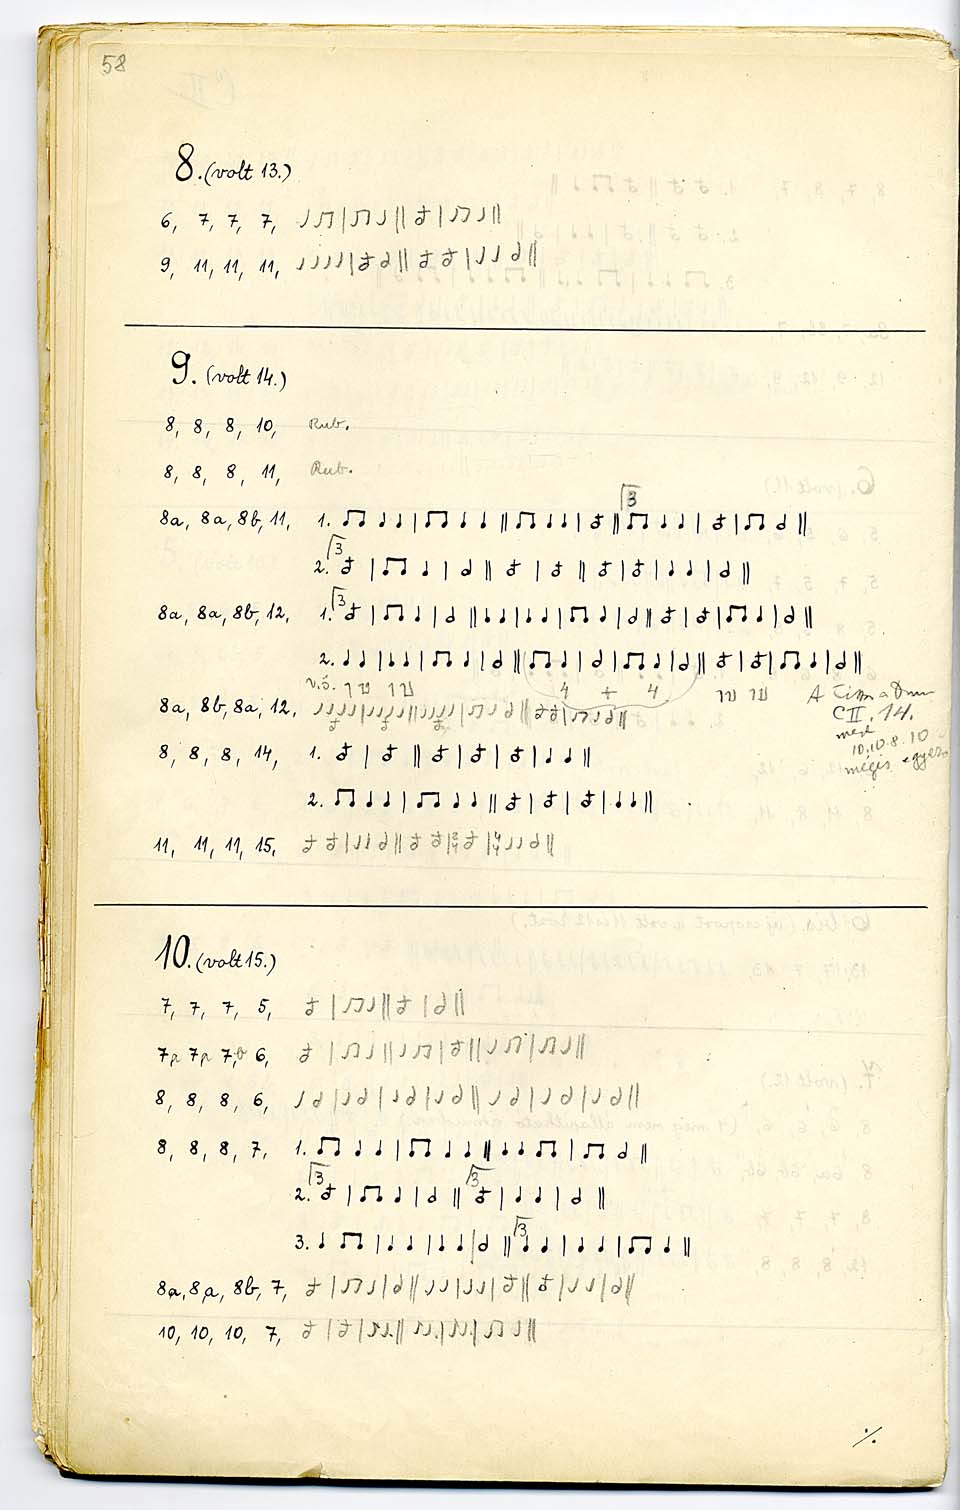 58
8. (volt 13.)
6, 7, 7, 7,
9, 11, 11, 11,
9. (volt 14.)
8, 8, 8, 10, Rub.
8, 8, 8, 11, Rub.
3
8a, 8a, 8b, 11, 1.
3
2.
8a, 8a, 8b, 12, 1. 3
2.
v.ö. 4 + 4 A
8a, 8b, 8a, 12, CII. 14.
10.10.8.10
mégis
8, 8, 8, 14, 1.
2.
11, 11, 11, 15,
10. (volt 15.)
7, 7, 7, 5,
6,
8, 8, 8, 6,
8, 8, 8, 7, 1.
3 3
2.
3
3.
8a, 8a, 8b, 7,
10, 10, 10, 7,
·/.